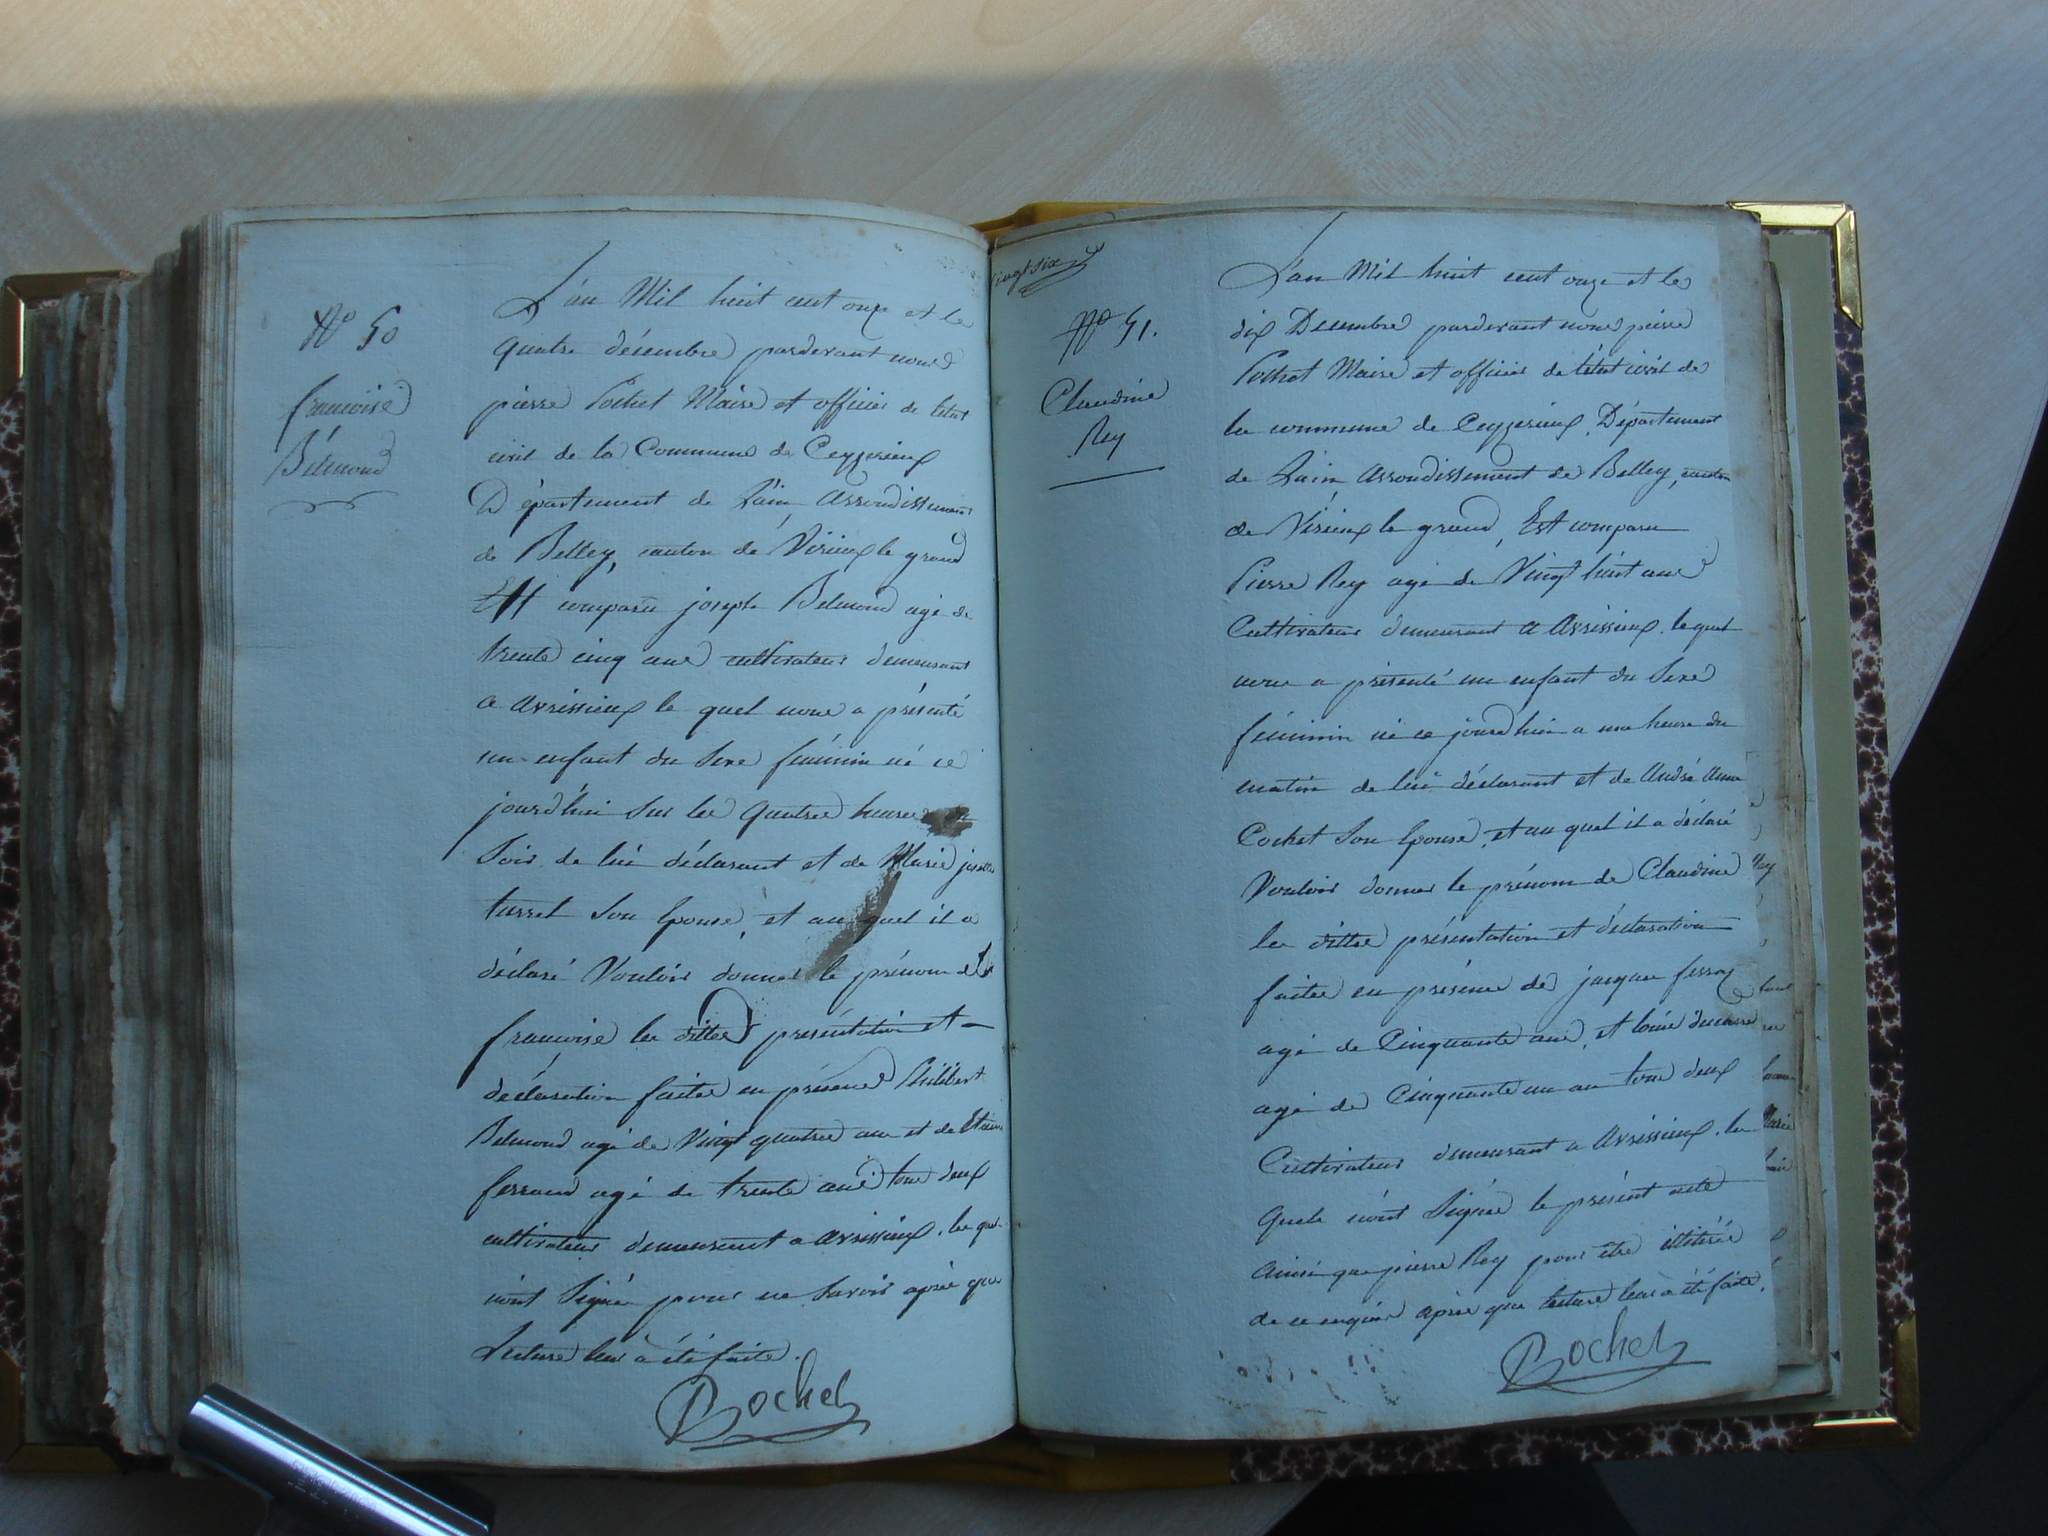 N° 50
françoise
Belmond
L'an Mil huit cent onze et le
quatre décembre pardevant nous
pierre Pochet Maire et officier de l'état
civil de la Commune de Ceyzerieux
Département de Lain Arrondissement
de Belley, canton de Virieux le grand
Est comparu joseph Belmond agé de
trente cinq ans cultivateur demeurant
a avrissieux le quel nous a présenté
un enfant du Sexe féminin né ce
jourd'hui sur les quatre heures
Soir de lui déclarant et de Marie
Son Epouse, et au quel il a
déclaré Vouloir donner le prénom de
françoise les dittes présentation et
déclaration faites en présence Philibert
Belmond agé de Vingt quatre ans et de Etienne
ferrand agé de trente ans tous deux
cultivateurs demeurant a avrissieux. les quels
n'ont Signé pour ne Savoir après que
Lecture leur à été faite.
Pochet
vingt six
N° 51.
Claudine
Rey
L'an Mil huit cent onze et le
dix Decembre pardevant nous pierre
Pochet Maire et officier de l'état civil de
la commune de Ceyzerieux, Département
de Lain Arrondissement de Belley, canton
de Virieux le grand, Est comparu
Pierre Rey agé de Vingt huit ans
Cultivateur demeurant a Avrissieux. le quel
nous a présenté un enfant du Sexe
féminin né ce jourd'hui a une heure du
matin de lui déclarant et de André Anne
Cochet Son Epouse, et au quel il a déclaré
Vouloir donner le prénom de Claudine
les dittes présentation et déclaration
faites en présence de jacque
agé de Cinquante ans, et louis
agé de Cinquante un an tous deux
Cultivateurs demeurant a Avrissieux. les
quels n'ont Signés le présent acte
ainsi que pierre Rey pour être illitérés
de ce enquis après que lecture leur à été faite.
Pochet